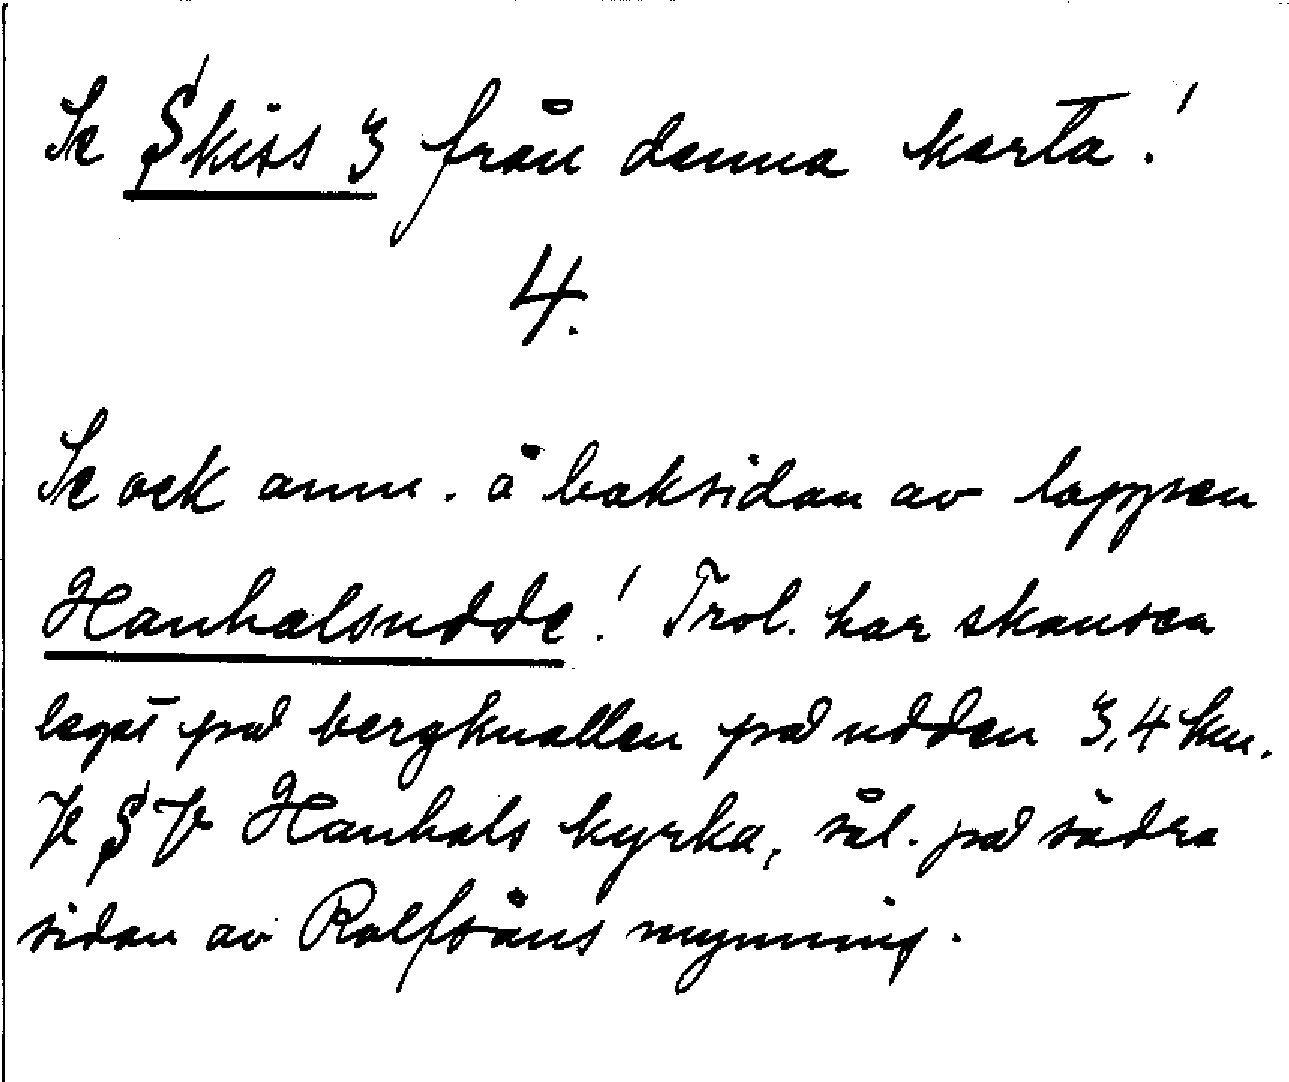 Se Skiss 3 från denna karta!
4.
Se ock anm. å baksidan av lappen
Hanhalsudde! Trol. har skansen
legat på bergknallen på udden 3,4 km.
V S V Hanhals kyrka, sål. på södra
sidan av Rolfsåns mynning.